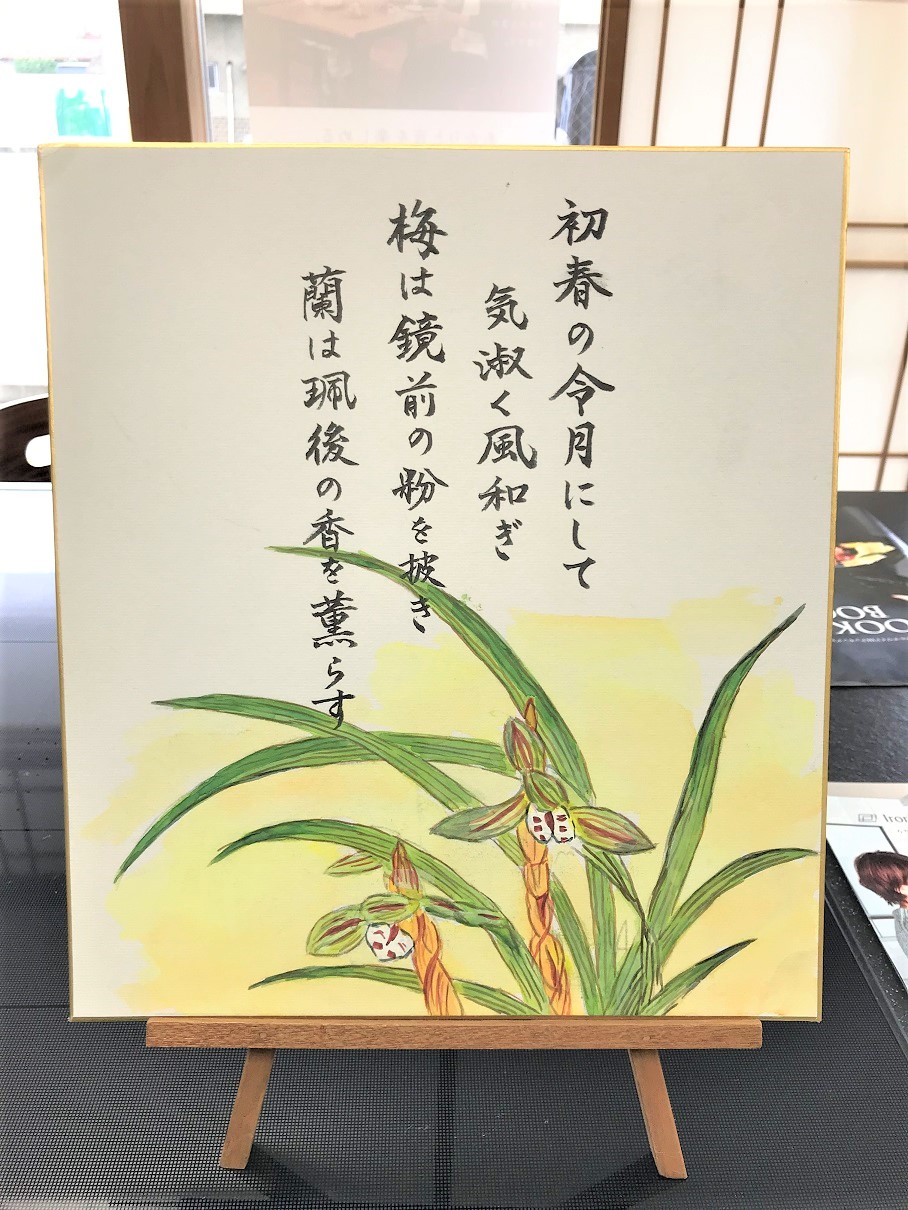 初春の令月にして
気淑く風和ぎ
梅は鏡前の粉を披き
蘭は珮後の香を薫らす